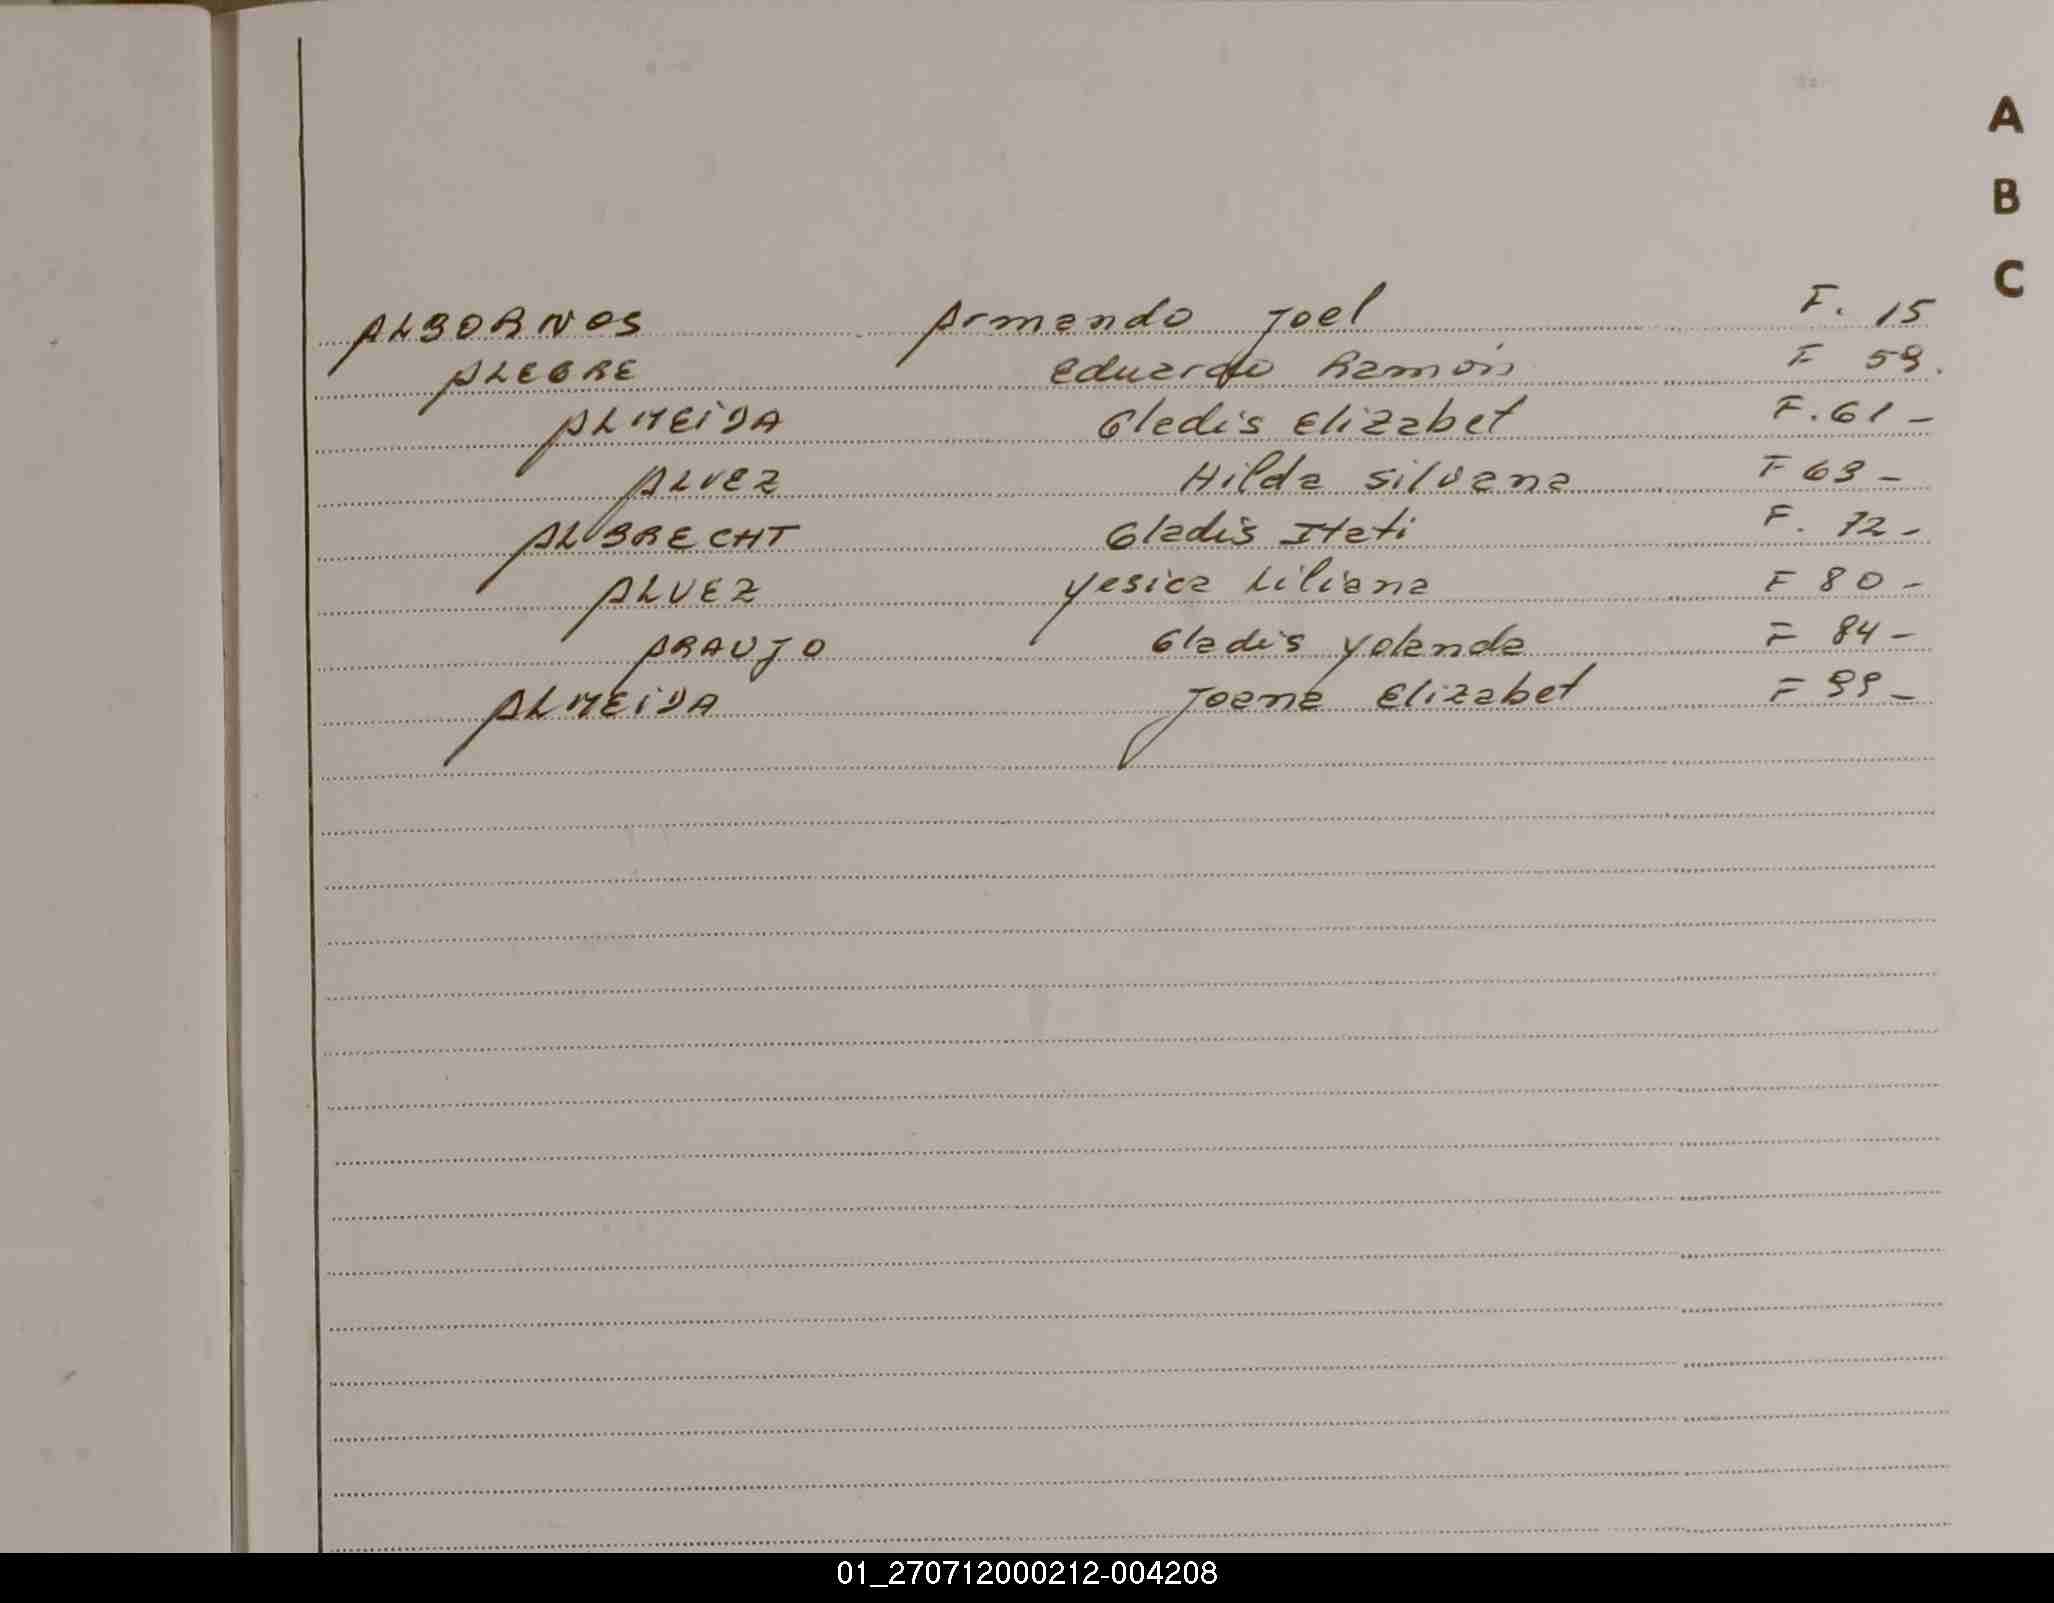 A
B
C
ALBORNOS Armando Joel F. 15
ALEGRE Eduardo Ramón F 59.
ALMEIDA Gladis Elizabet F. 61 -
ALVEZ Hilda Silvana F 69 -
ALBRECHT Gladis Itati F. 72 -
ALVEZ Yesica Liliana F 80 -
ARAUJO Gladis Yolanda F 84 -
ALMEIDA Joana Elizabet F 99 -
01_270712000212-004208